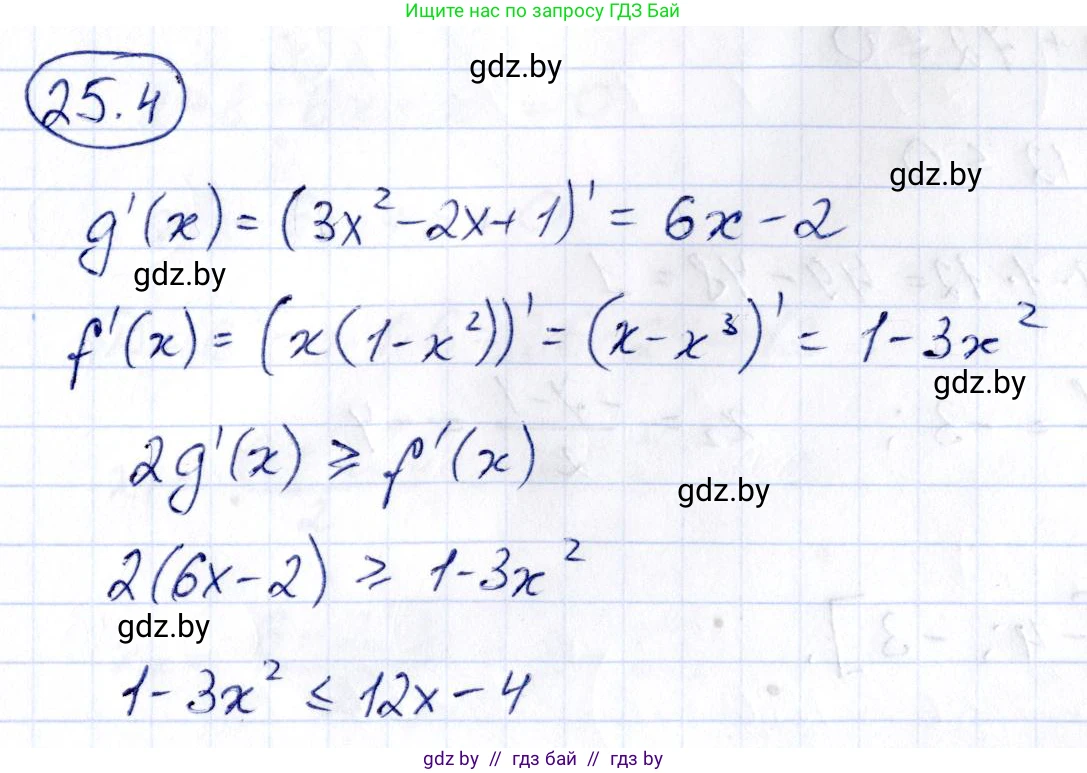 Ищите нас по запросу ГДЗ Бай
gdz.by
25.4
gdz.by
g'(x) = (3x² - 2x + 1)' = 6x - 2
gdz.by
f'(x) = (x(1 - x²))' = (x - x³)' = 1 - 3x²
gdz.by
2g'(x) ≥ f'(x)
gdz.by
2(6x - 2) ≥ 1 - 3x²
gdz.by
1 - 3x² ≤ 12x - 4
gdz.by // гдз бай // гдз by